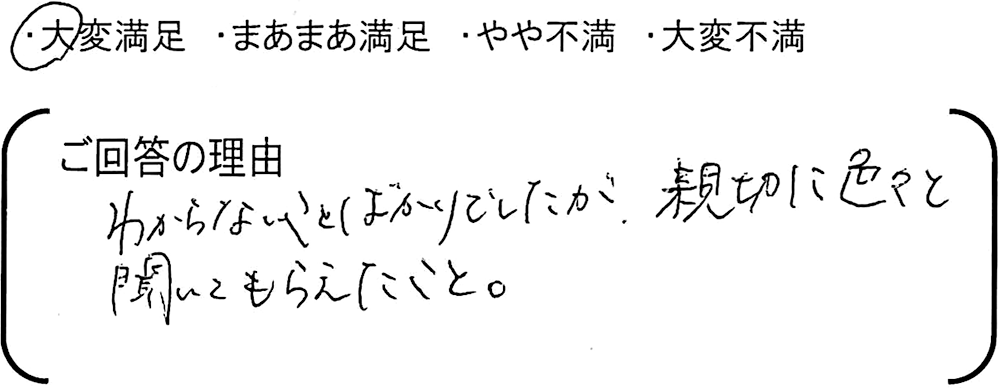 ・大変満足 ・まあまあ満足 ・やや不満 ・大変不満
ご回答の理由
わからないことばかりでしたが、親切に色々と
聞いてもらえたこと。